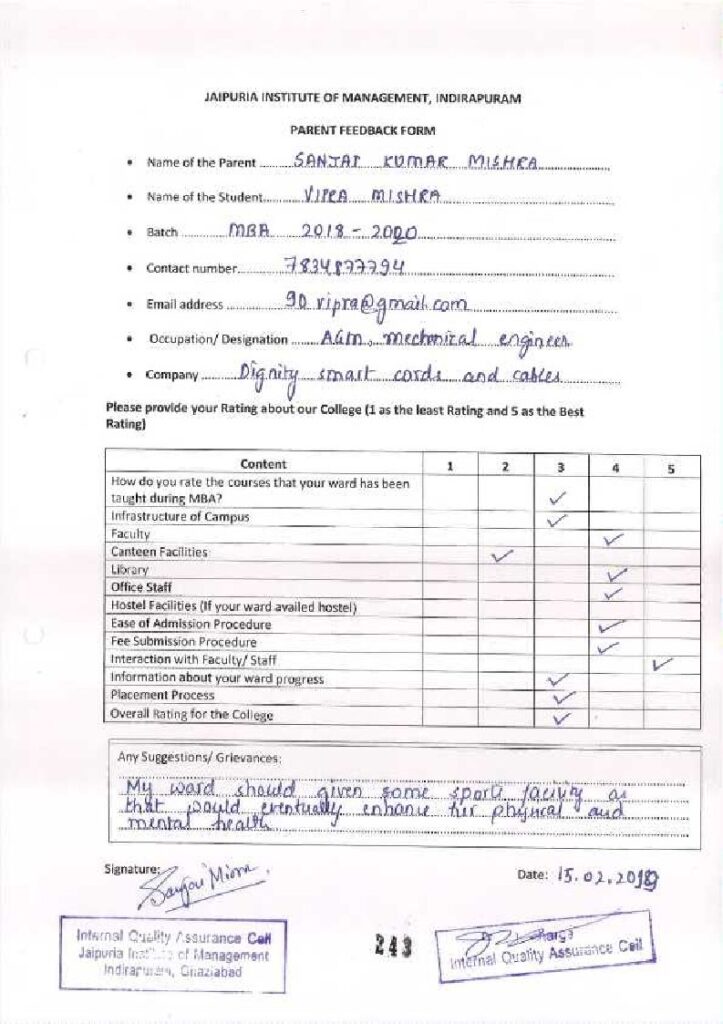 JAIPURIA INSTITUTE OF MANAGEMENT, INDIRAPURAM
PARENT FEEDBACK FORM
• Name of the Parent ........ SANJAY KUMAR MISHRA
• Name of the Student........ VIPRA MISHRA
• Batch ........ MBA 2018 - 2020
• Contact number........ 7834877794
• Email address ........ 90.vipra@gmail.com
• Occupation/ Designation ........ AGM, mechanical engineer
• Company ........ Dignity smart cords and cables
Please provide your Rating about our College (1 as the least Rating and 5 as the Best
Rating)
Content 1 2 3 4 5
How do you rate the courses that your ward has been
taught during MBA? ✓
Infrastructure of Campus ✓
Faculty ✓
Canteen Facilities ✓
Library ✓
Office Staff ✓
Hostel Facilities (If your ward availed hostel)
Ease of Admission Procedure ✓
Fee Submission Procedure ✓
Interaction with Faculty/ Staff ✓
Information about your ward progress ✓
Placement Process ✓
Overall Rating for the College ✓
Any Suggestions/ Grievances:
My ward should given some sports as
that would eventually enhance her physical and
mental health
Signature: Date: 15.02.2019
Internal Quality Assurance Cell
Jaipuria Institute of Management
Indirapuram, Ghaziabad
243
Internal Quality Assurance Cell